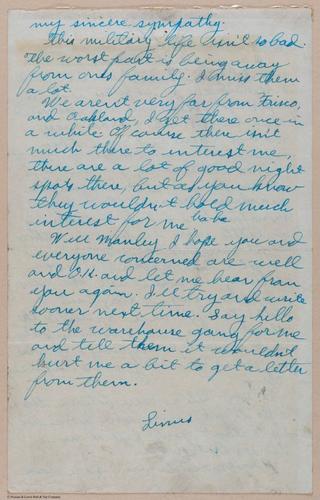 my sincere sympathy.
This military life isn't so bad.
The worst part is being away
from ones family. I miss them
a lot.
We aren't very far from Frisco,
and Oakland, I get there once in
a while. Of course there isn't
much there to interest me,
there are a lot of good night
spots there, but as you know
they wouldn't hold much
interest for me babe.
Well Manley I hope you and
everyone concerned are well
and O.K. and let me hear from
you again. I'll try and write
sooner next time. Say hello
to the warehouse gang for me
and tell them it wouldn't
hurt me a bit to get a letter
from them.
Linus